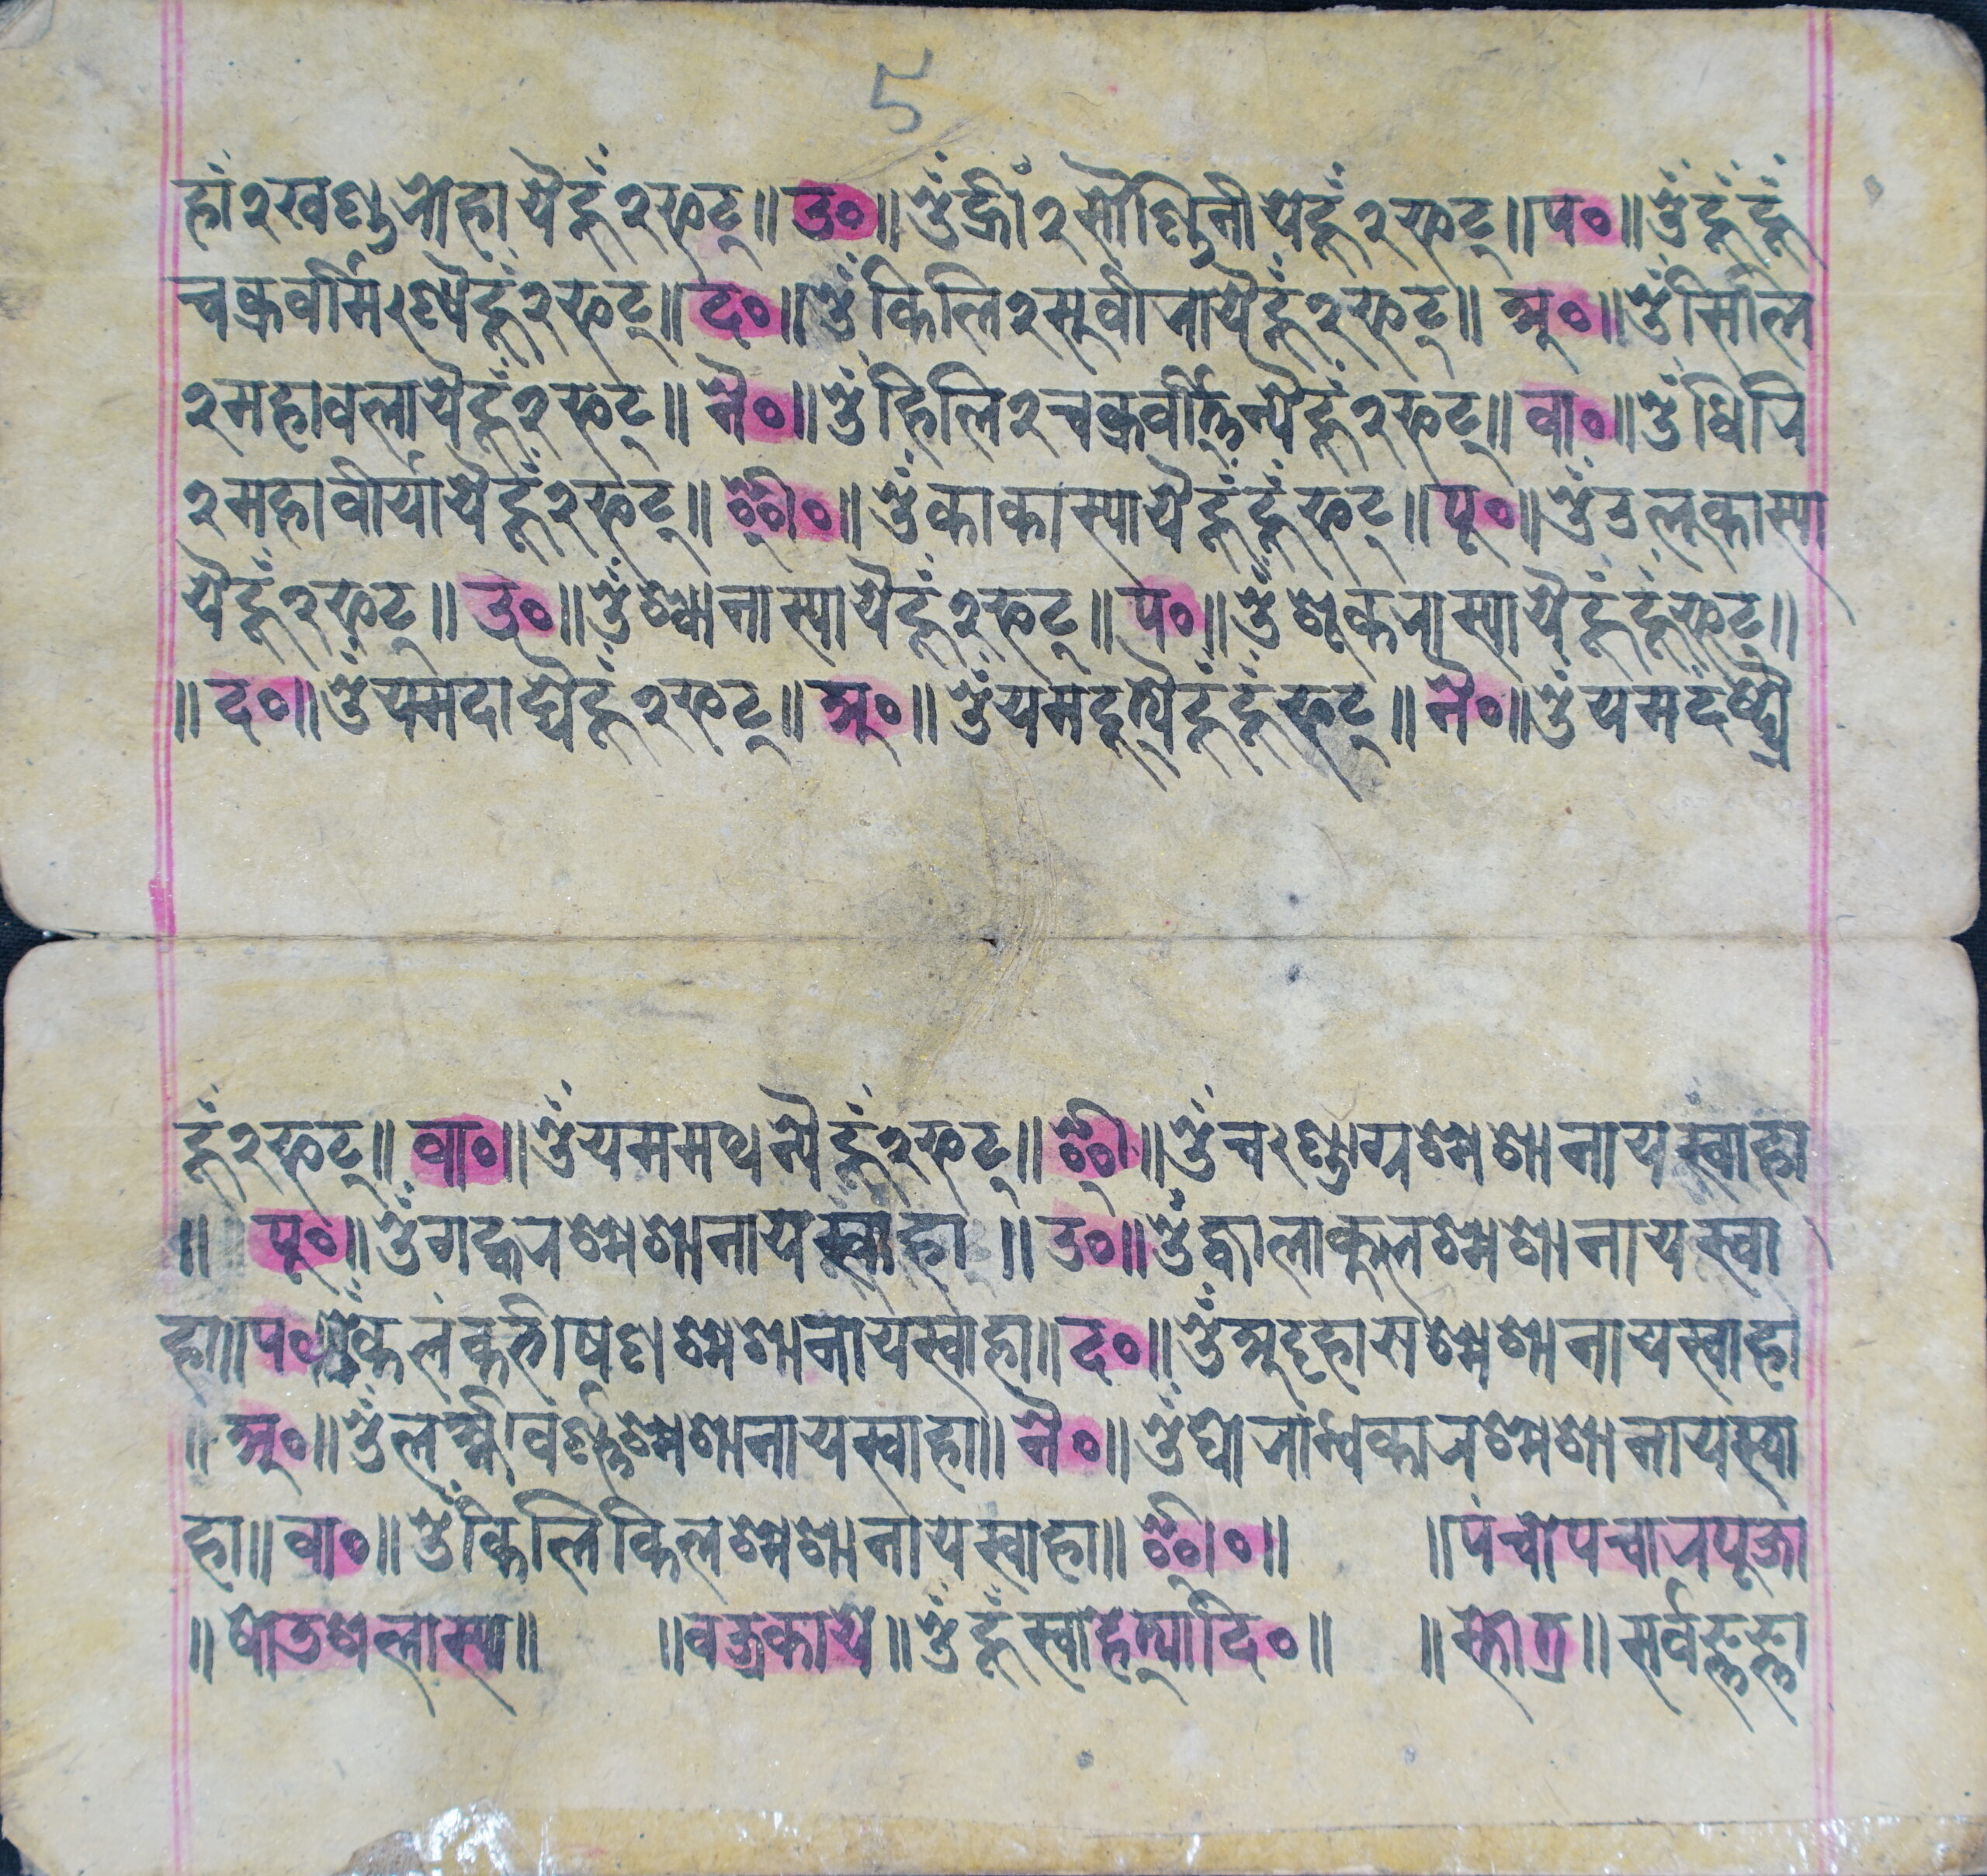 5
ह्रां२खण्डरोहायैहूँ२फट्॥उ०॥ॐह्रीं२सौण्डिनीयेहूँ२फट्॥प०॥ॐहूँहूँ
चक्रवर्मिण्यैहूँ२फट्॥द०॥ॐकिलि२सुवीरायैहूँ२फट्॥अ०॥ॐसिलि
२महावलायैहूँ२फट्॥नै०॥ॐहिलि२चक्रवर्त्तिन्यैहूँ२फट्॥वा०॥ॐधिरि
२महावीर्यायैहूँ२फट्॥ई०॥ॐकाकास्यायैहूँहूँफट्॥पू०॥ॐउलूकास्या
यैहूँ२फट्॥उ०॥ॐश्वानास्यायैहूँ२फट्॥प०॥ॐशूकरास्यायैहूँहूँफट्॥
॥द०॥ॐयमदाढ्यैहूँ२फट्॥अ०॥ॐयमदूत्यैहूँहूँफट्॥नै०॥ॐयमदंष्ट्रौ
हूँ२फट्॥वा०॥ॐयममथन्यैहूँ२फट्॥ई॥ॐचण्डाग्रश्मशानायस्वाहा
॥पू०॥ॐगह्वरश्मशानायस्वाहा॥उ०॥ॐज्वालाकुलश्मशानायस्वा
हा॥प०॥ॐकलंकभीषणश्मशानायस्वाहा॥द०॥ॐअट्टहासश्मशानायस्वाहा
॥अ०॥ॐलक्ष्मीवर्णश्मशानायस्वाहा॥नै०॥ॐघोरांधकारश्मशानायस्वा
हा॥वा०॥ॐकिलिकिलश्मशानायस्वाहा॥ई०॥ ॥पंचोपचारपूजा
॥षोतशलास्या॥ ॥वज्रकाये॥ॐहूँस्वाहेत्यादि०॥ ॥स्तोत्र॥सर्वज्ञज्ञा